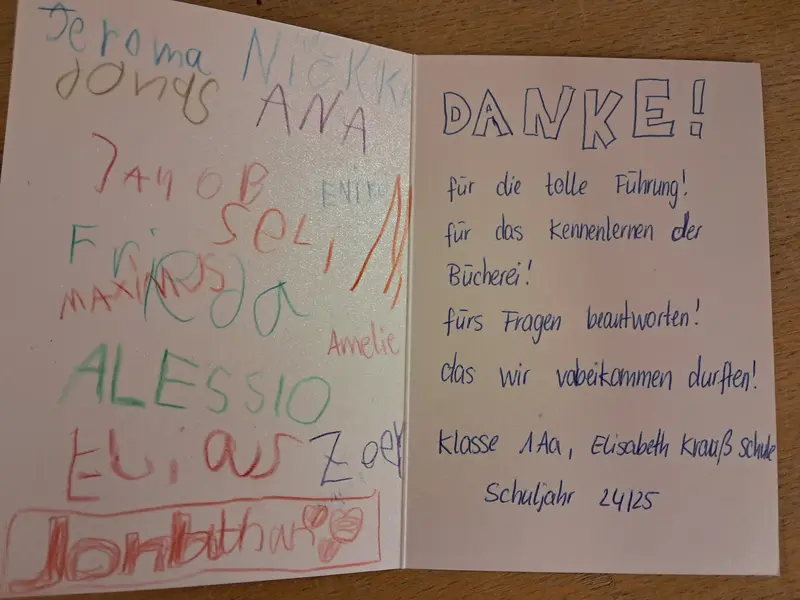 Jeroma
Jonas
ANA
JAKOB
SELi
Frieda
MAXIMUS
Amelie
ALESSIO
Elias
Zoey
Jonathan
DANKE!
für die tolle Führung!
für das Kennenlernen der
Bücherei!
fürs Fragen beantworten!
das wir vobeikommen durften!
Klasse 1Aa, Elisabeth Krauß Schule
Schuljahr 24/25